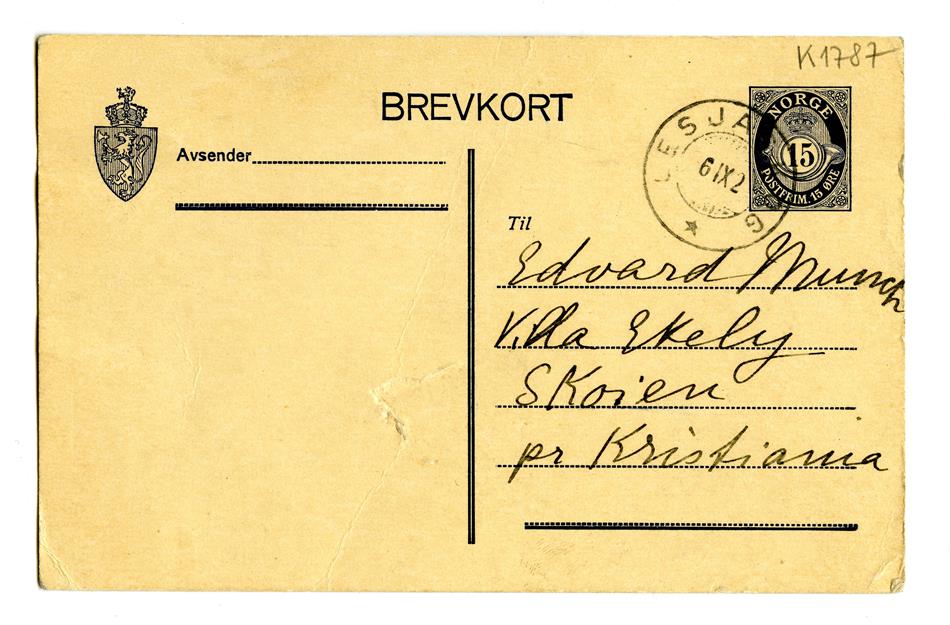 K1787
BREVKORT
NORGE
15
POSTFRIM. 15 ØRE
Avsender
6 IX 2
Til
Edvard Munch
Villa Ekely
Skøien
pr Kristiania